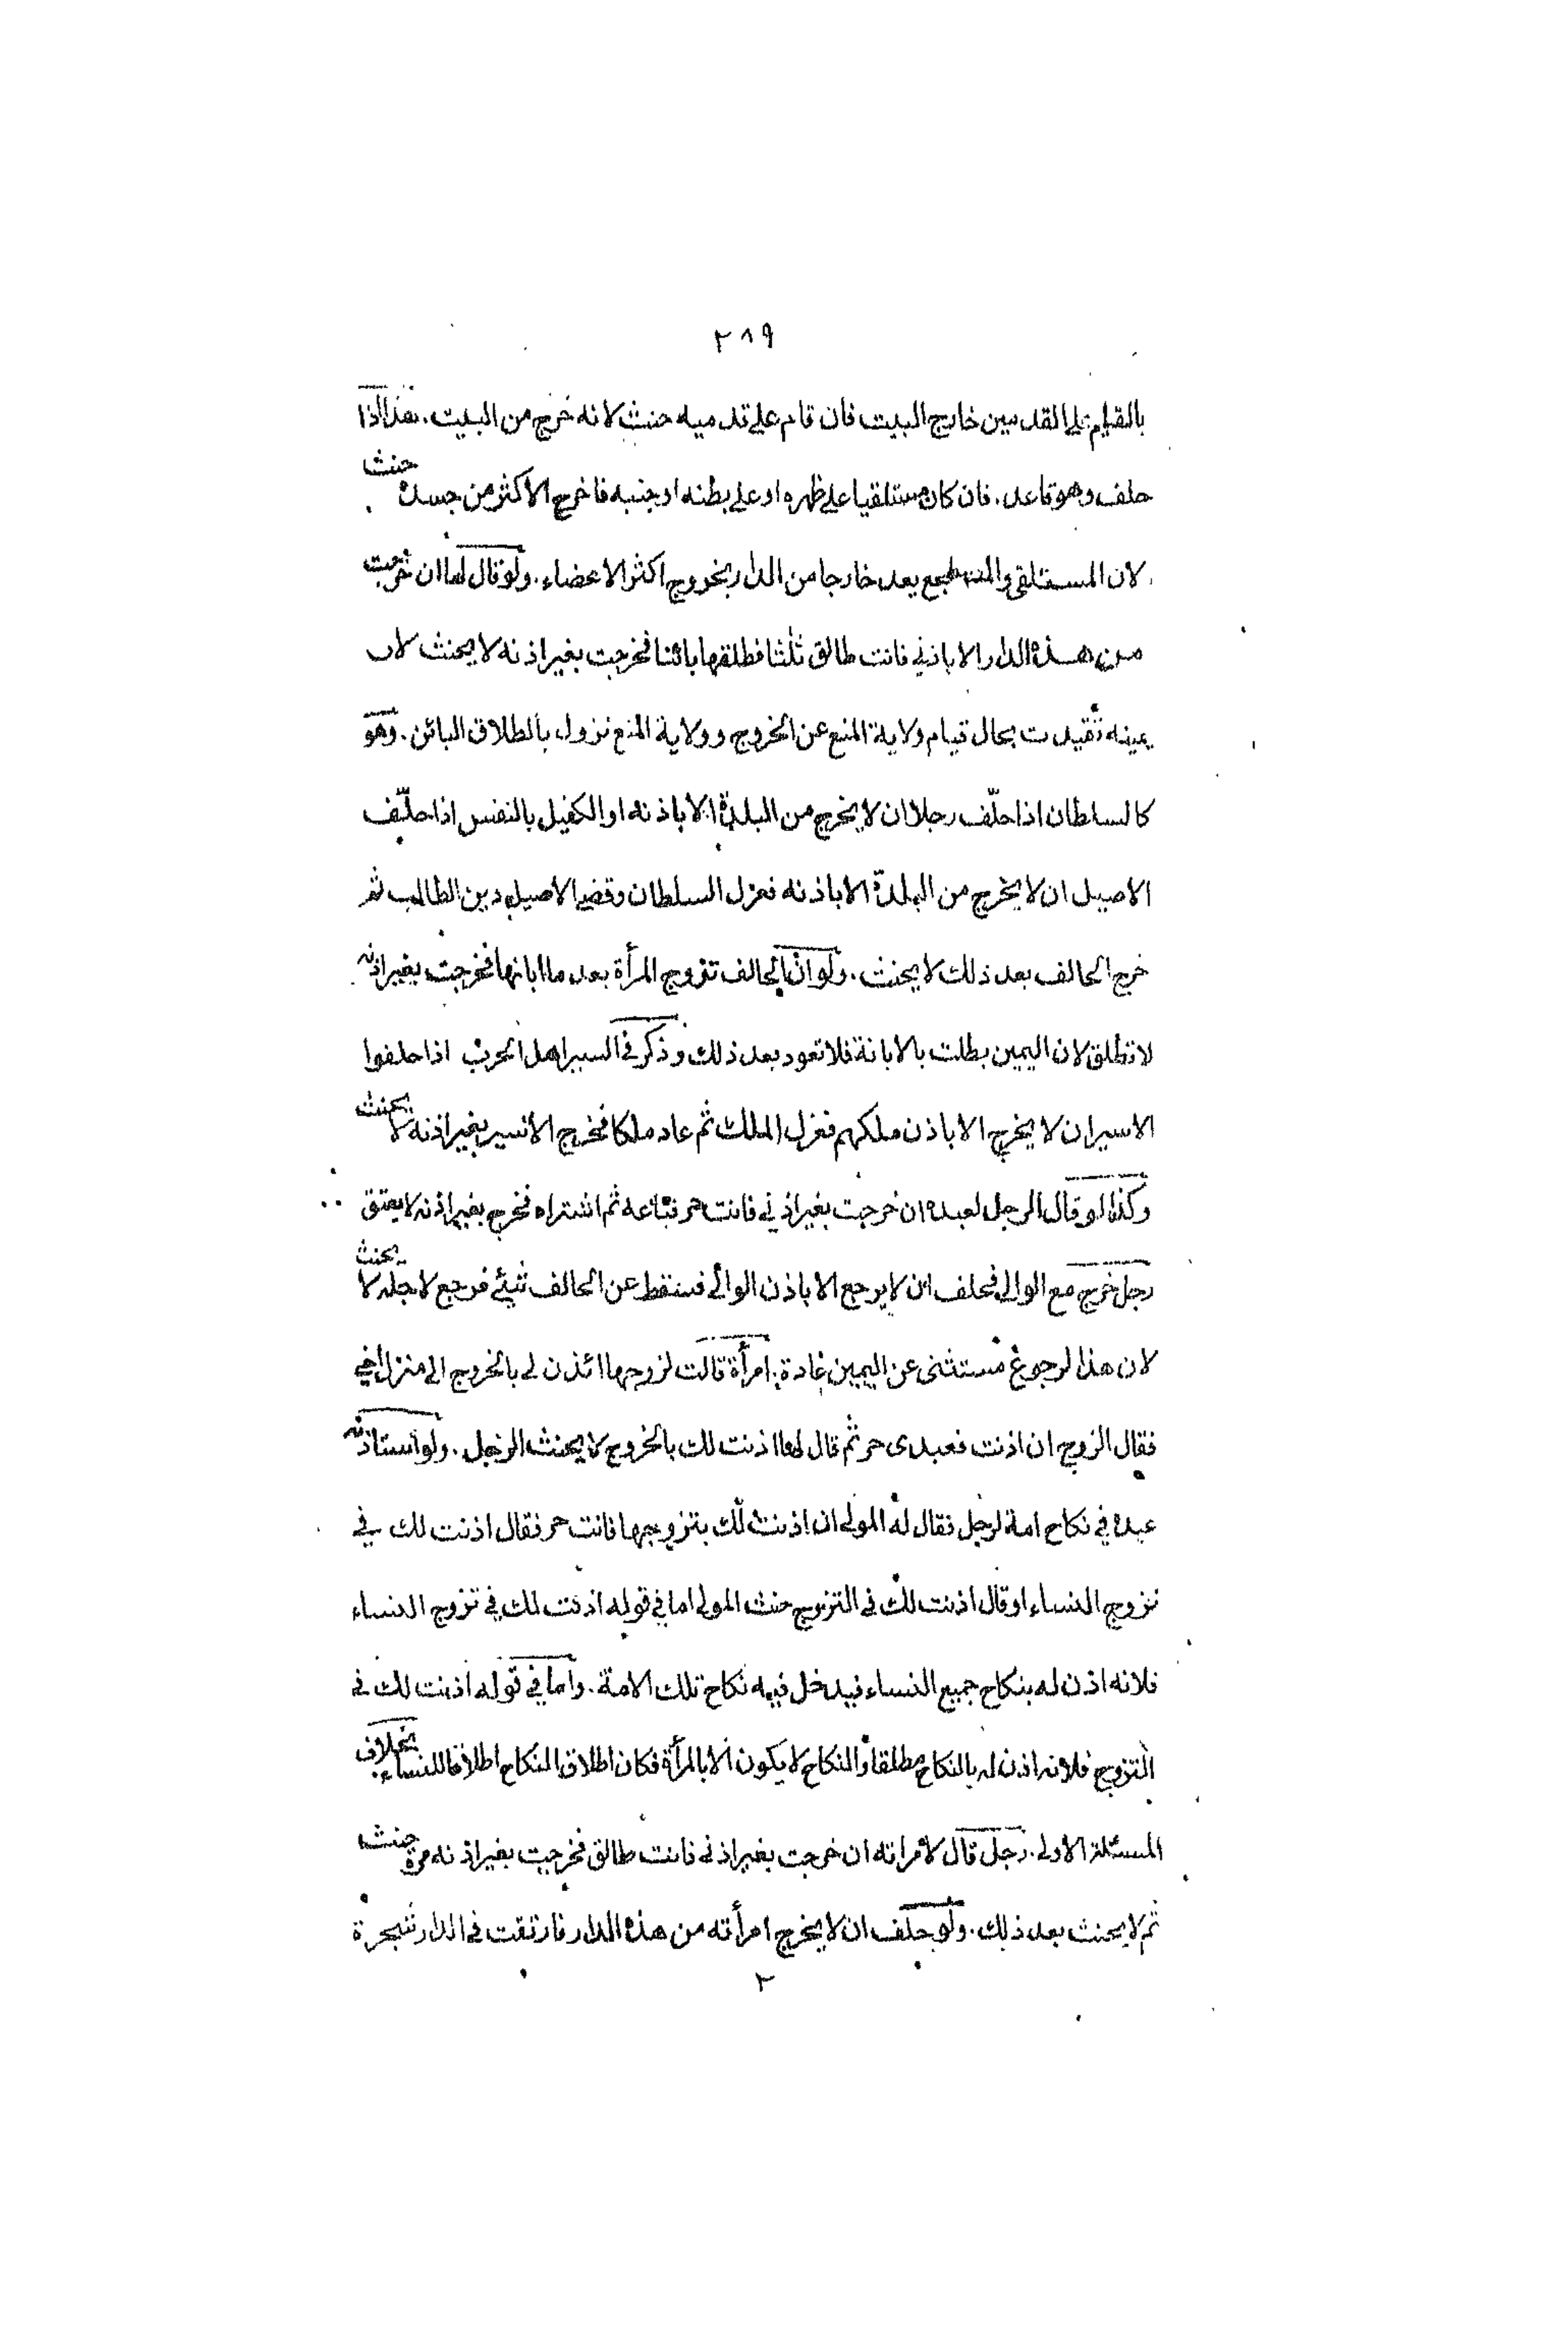 ٢٨٩
بالقيام على القدمين خارج البيت فان قام على قدميه حنث لانه خرج من البيت. هذا اذا
حلف وهو قاعد. فان كان مستلقيا على ظهره او على بطنه او جنبه فاخرج الاكثر من جسده حنث
لان المستلقى والمضطجع يعد خارجا من الدار بخروج اكثر الاعضاء. ولو قال لها ان خرجت
من هذه الدار الا باذنى فانت طالق ثلثا فطلقها بائنا فخرجت بغير اذنه لا يحنث لان
يمينه تقيدت بحال قيام ولاية المنع عن الخروج وولاية المنع تزول بالطلاق البائن. وهو
كالسلطان اذا حلّف رجلا ان لا يخرج من البلدة الا باذنه او الكفيل بالنفس اذا حلّف
الاصيل ان لا يخرج من البلدة الا باذنه فعزل السلطان وقضى الاصيل دين الطالب ثم
خرج الحالف بعد ذلك لا يحنث. ولو انّ الحالف تزوج المرأة بعد ما ابانها فخرجت بغير اذنه
لا تطلق لان اليمين بطلت بالابانة فلا تعود بعد ذلك وذكر فى السير اهل الحرب اذا حلفوا
الاسير ان لا يخرج الا باذن ملكهم فعزل الملك ثم عاد ملكا فخرج الاسير بغير اذنه لا يحنث
وكذا لو قال الرجل لعبده ان خرجت بغير اذنى فانت حر فباعه ثم اشتراه فخرج بغير اذنه لا يعتق
رجل خرج مع الوالى فحلف ان لا يرجع الا باذن الوالى فسقط عن الحالف شيئ فرجع لاجله لا يحنث
لان هذا الرجوع مستثنى عن اليمين عادة. امرأة قالت لزوجها ائذن لى بالخروج الى منزل اخى
فقال الزوج ان اذنت فعبدى حر ثم قال لها اذنت لك بالخروج لا يحنث الرجل. ولو استاذنه
عبده فى نكاح امة لرجل فقال له المولى ان اذنت لك بتزوجها فانت حر فقال اذنت لك فى
تزوج النساء او قال اذنت لك فى التزويج حنث المولى اما فى قوله اذنت لك فى تزوج النساء
فلانه اذن له بنكاح جميع النساء فيدخل فيه نكاح تلك الامة. واما فى قوله اذنت لك فى
التزويج فلانه اذن له بالنكاح مطلقا والنكاح لا يكون الا بالمرأة فكان اطلاق النكاح اطلاقا للنساء بخلاف
المسئلة الاولى. رجل قال لامراته ان خرجت بغير اذنى فانت طالق فخرجت بغير اذنه مرة حنث
ثم لا يحنث بعد ذلك. ولو حلف ان لا يخرج امرأته من هذه الدار فارتقت فى الدار شجرة
٢